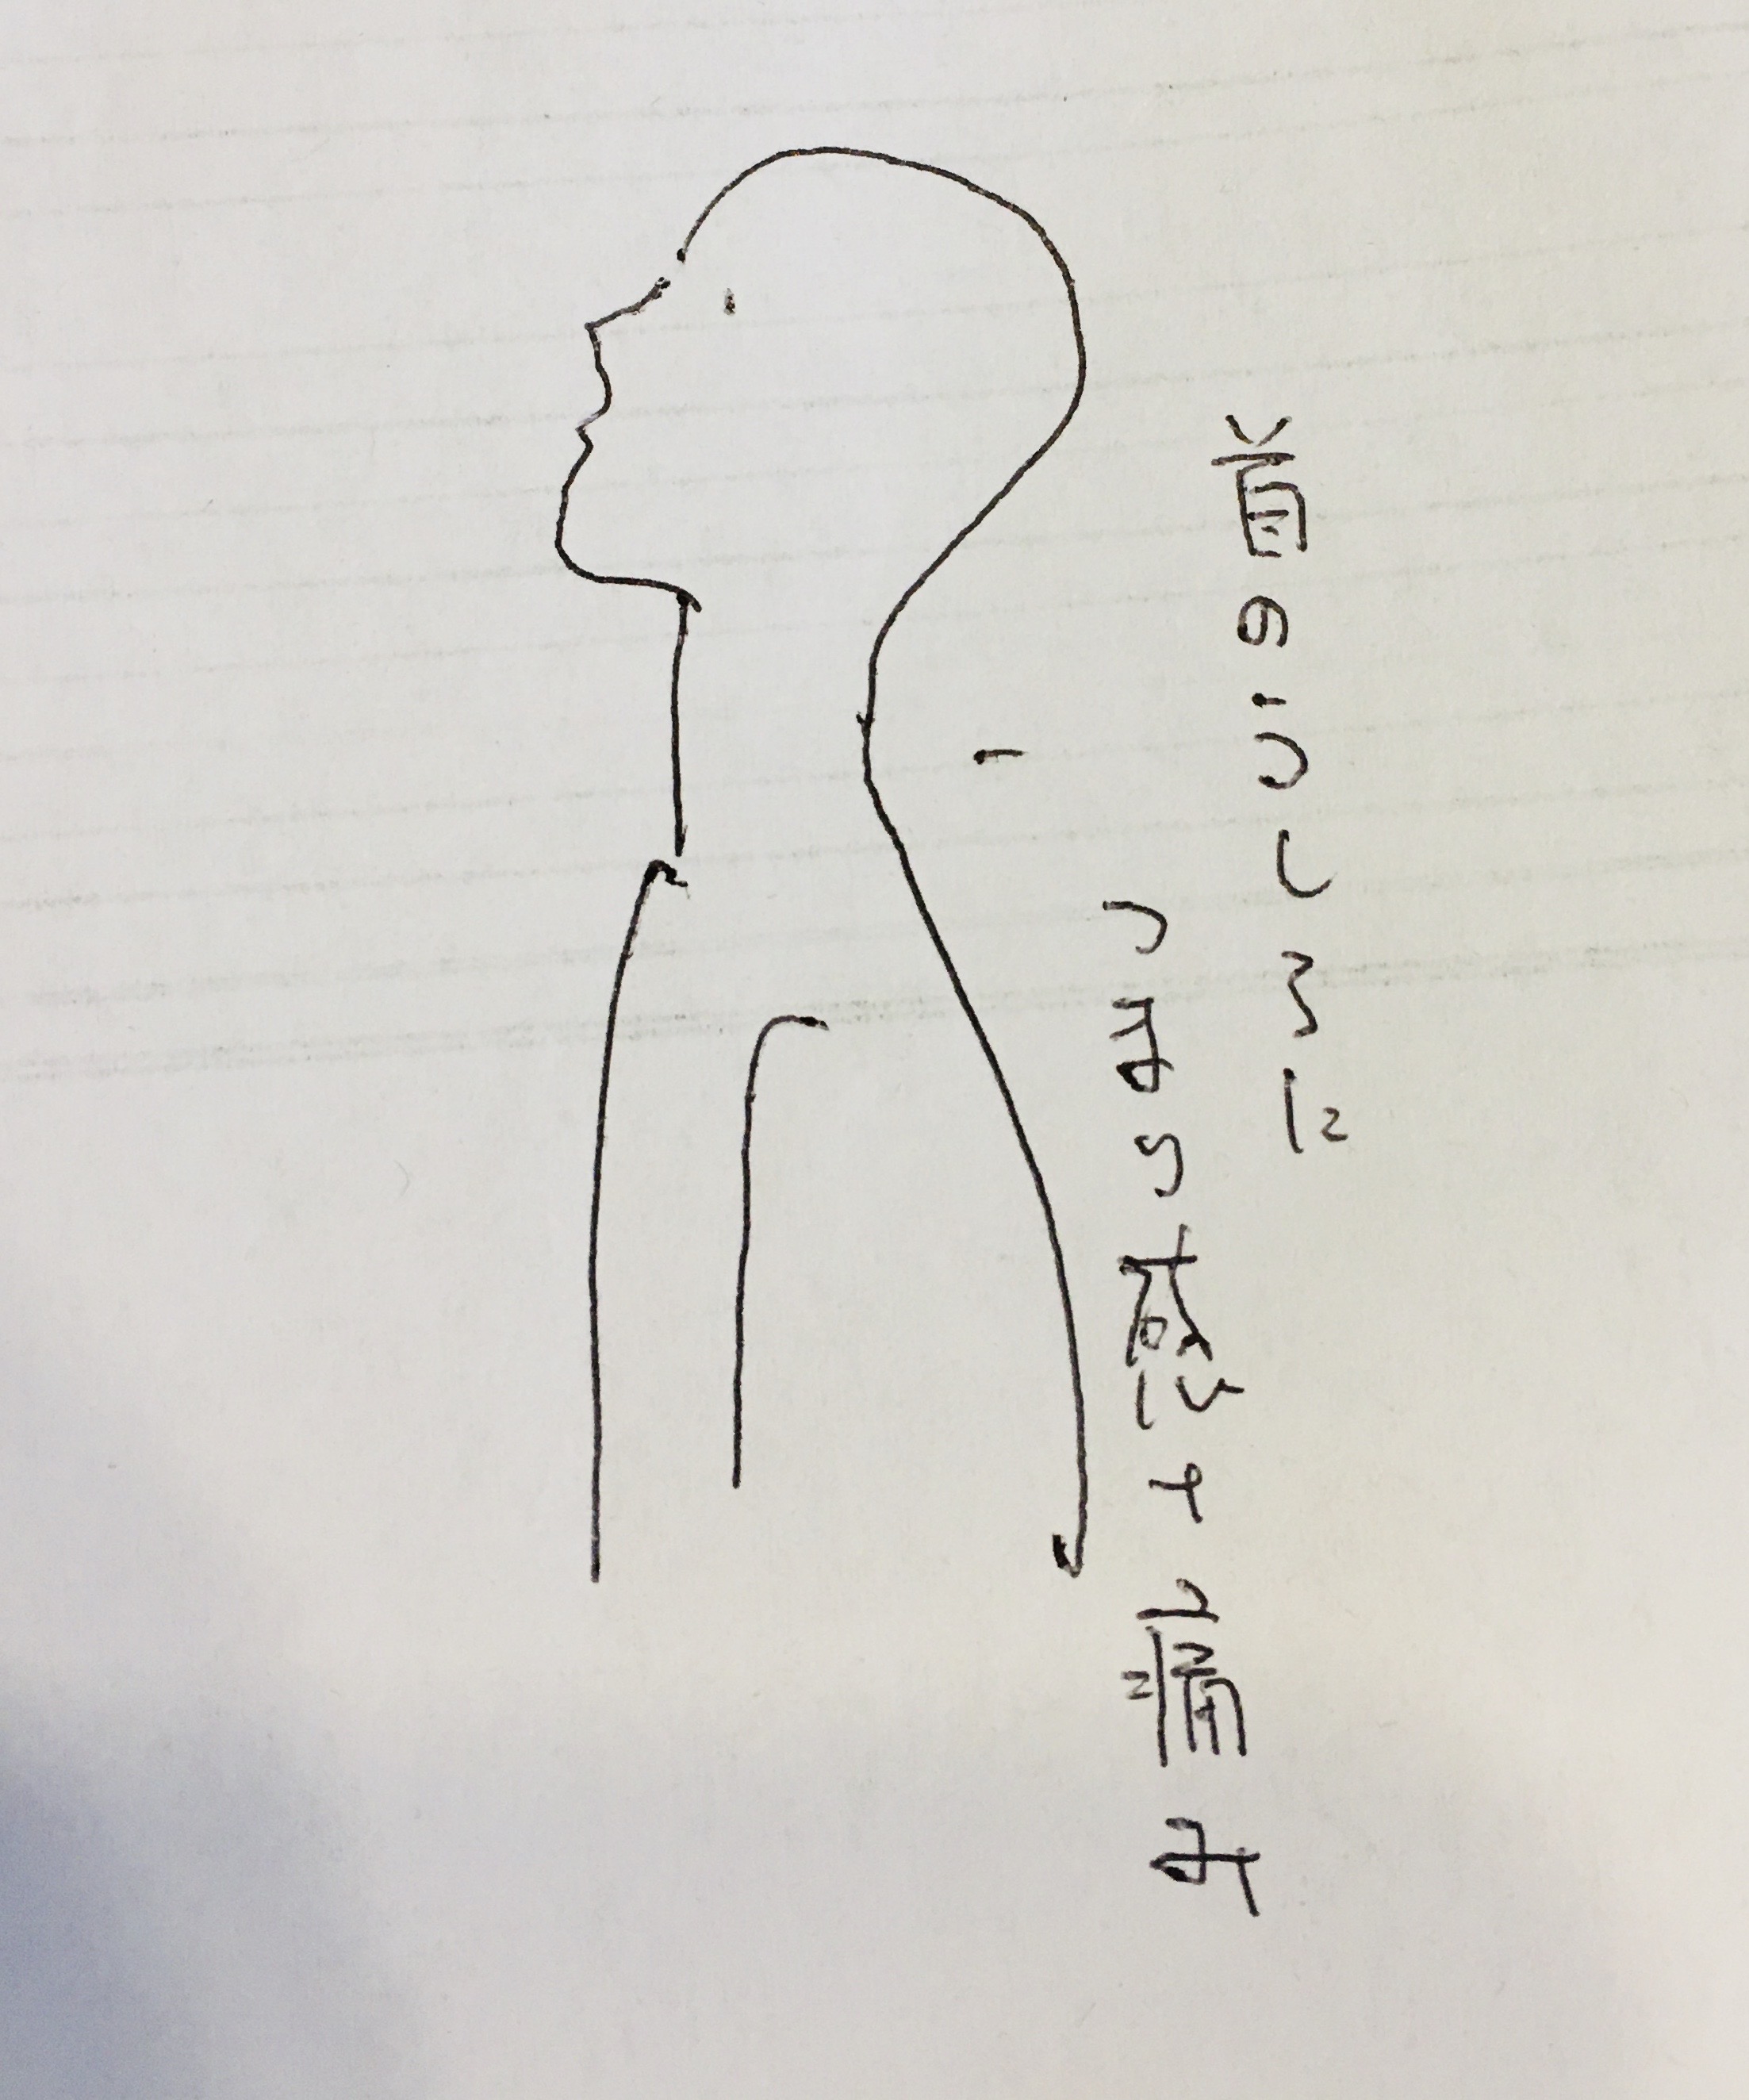 首のうしろに
つまり感や痛み